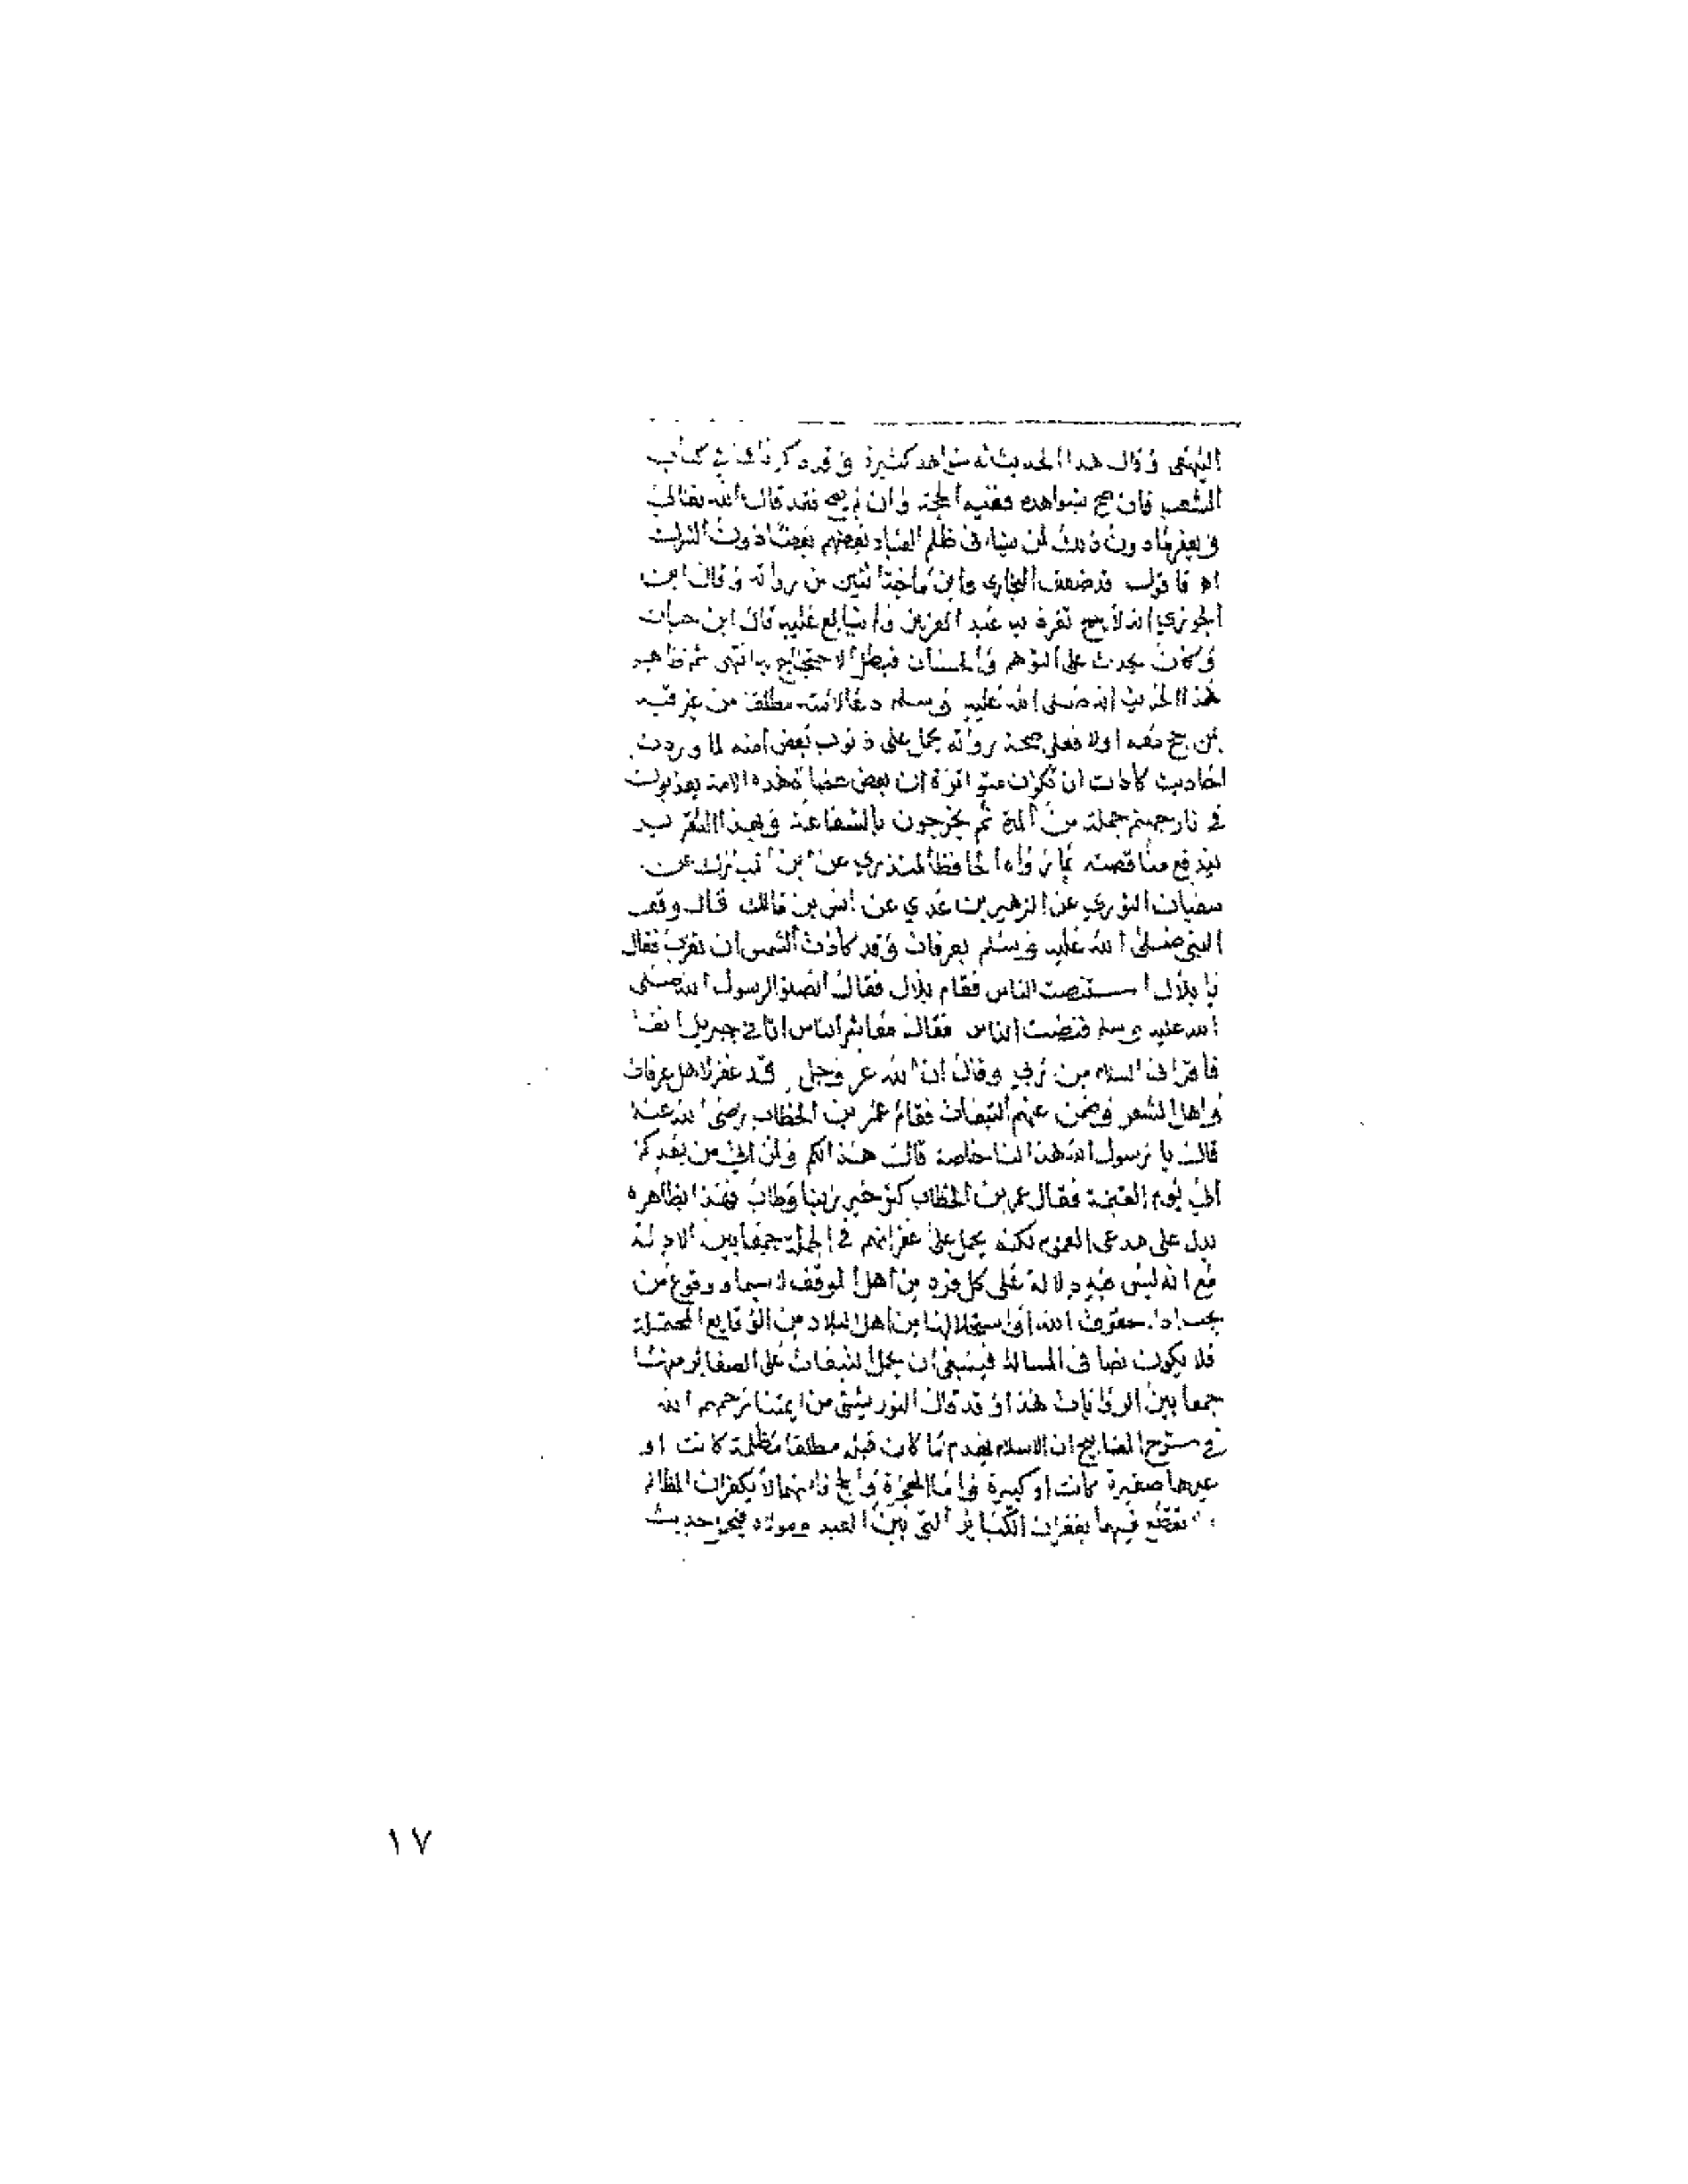 البيهقي وقال هذا الحديث له شواهد كثيرة وقد ذكرناها في كتاب
الشعب فان صح بشواهده ففيه الحجة وان لم يصح فقد قال الله تعالى
ويغفر ما دون ذلك لمن يشاء وظلم العباد بعضهم بعضا دون الشرك
اه فاقول قد ضعف البخاري وابن ماجة اثنين من رواته وقال ابن
الجوزي انه لا يصح تفرد به عبد العزيز ولم يتابع عليه قال ابن حبان
وكان يحدث على التوهم والحسبان فبطل الاحتجاج به انتهى ثم ظاهر
هذا الحديث انه صلى الله عليه وسلم دعا لامته مطلقا من غير قيد
بمن حج معه اولا فعلى صحة رواته يحمل على ذنوب بعض امته لما وردت
احاديث كادت ان تكون متواترة ان بعض عصاة هذه الامة يعذبون
في نار جهنم جملة من المدة ثم يخرجون بالشفاعة وبهذا التقرير
يندفع مناقصته بما رواه الحافظ المنذري عن ابن المبارك عن
سفيان الثوري عن الزهير بن عدي عن انس بن مالك قال وقف
النبي صلى الله عليه وسلم بعرفات وقد كادت الشمس ان تغرب فقال
يا بلال استنصت الناس فقام بلال فقال انصتوا لرسول الله صلى
الله عليه وسلم فنصت الناس فقال معاشر الناس اتاني جبريل انفا
فاقراني السلام من ربي وقال ان الله عز وجل قد غفر لاهل عرفات
واهل المشعر وضمن عنهم التبعات فقام عمر بن الخطاب رضي الله عنه
قال يا رسول الله هذا لنا خاصة قال هذا لكم ولمن اتى من بعدكم
الى يوم القيمة فقال عمر بن الخطاب كثر خير ربنا وطاب فهذا بظاهره
يدل على مدعى العموم لكنه يحمل على غفرانهم في الجملة جمعا بين الادلة
مع انه ليس فيه دلالة على كل فرد من اهل الموقف لا سيما ووقوع من
يجب حقوق الله او استحلالها من اهل البلاد من الوقايع المحتملة
فلا يكون نصا في المسالة فينبغي ان يحمل التبعات على الصغائر منها
جمعا بين الروايات هذا وقد قال التوربشتي من ايمتنا رحمهم الله
في شرح المصابيح ان الاسلام يهدم ما كان قبله مطلقا مظلمة كانت او
غيرها صغيرة كانت او كبيرة واما الهجرة والحج فانهما لا يكفران المظالم
ولا نقطع فيهما بغفران الكبائر التي بين العبد ومولاه فيحمل حديث
١٧